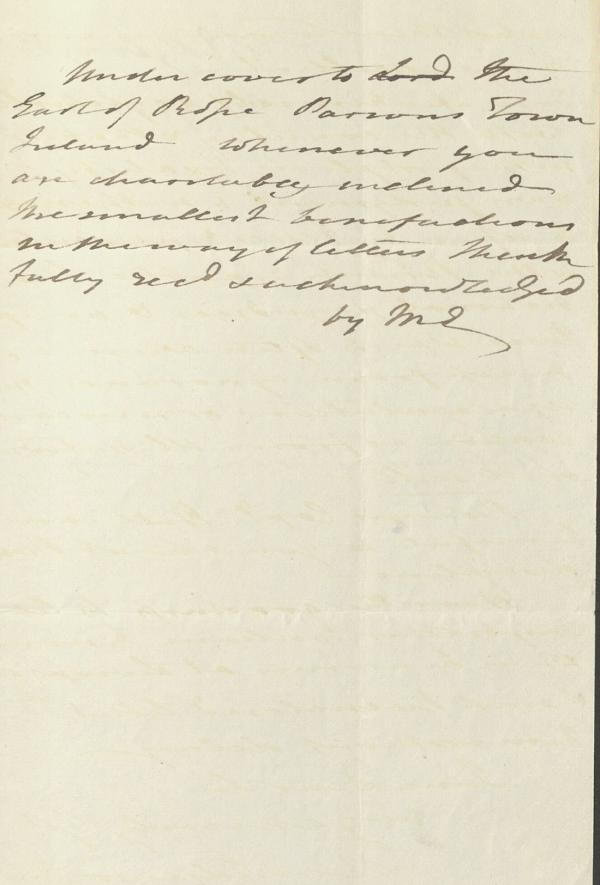 Under cover to Lord The
Earl of Rosse Parsons Town
Ireland whenever you
are charitably inclined
the smallest benefactions
in the way of letters thank
fully recd & acknowledg'd
by ME